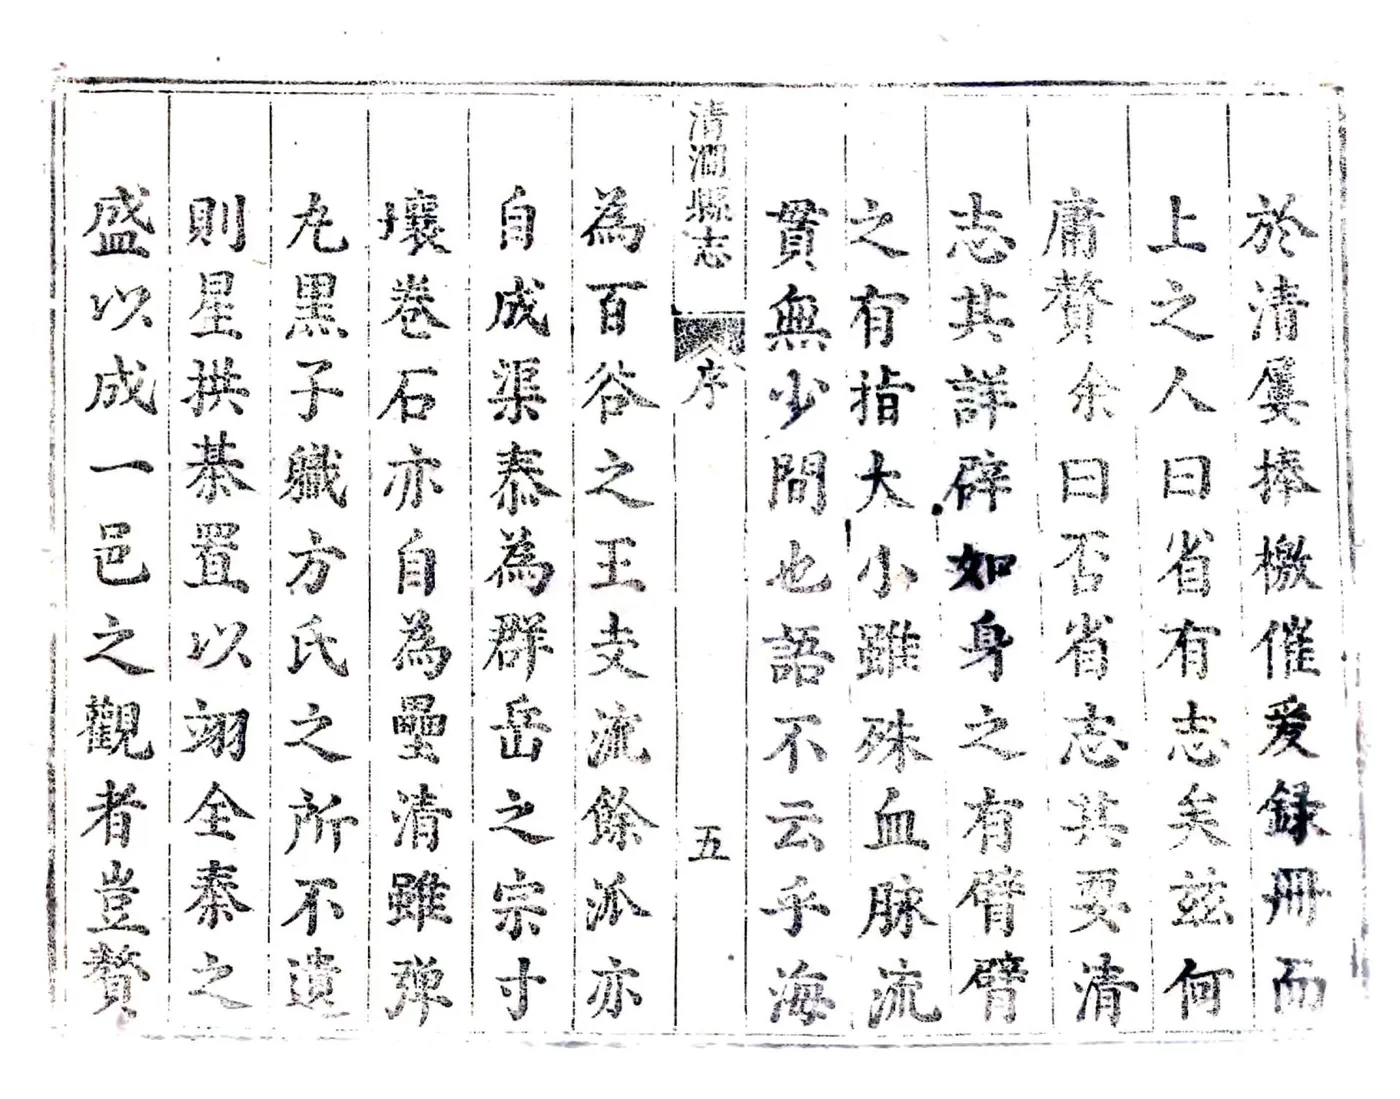 於清屢捧檄催爰録冊而
上之人曰省有志矣兹何
庸贅余曰否省志其要清
志其詳辟如身之有臂臂
之有指大小雖殊血脉流
貫無少間也語不云乎海
清澗縣志
序
五
為百谷之王支流餘派亦
自成渠泰為群岳之宗寸
壤卷石亦自為壘清雖弹
丸黒子職方氏之所不遺
則星拱棊置以翊全秦之
盛以成一邑之觀者豈贅